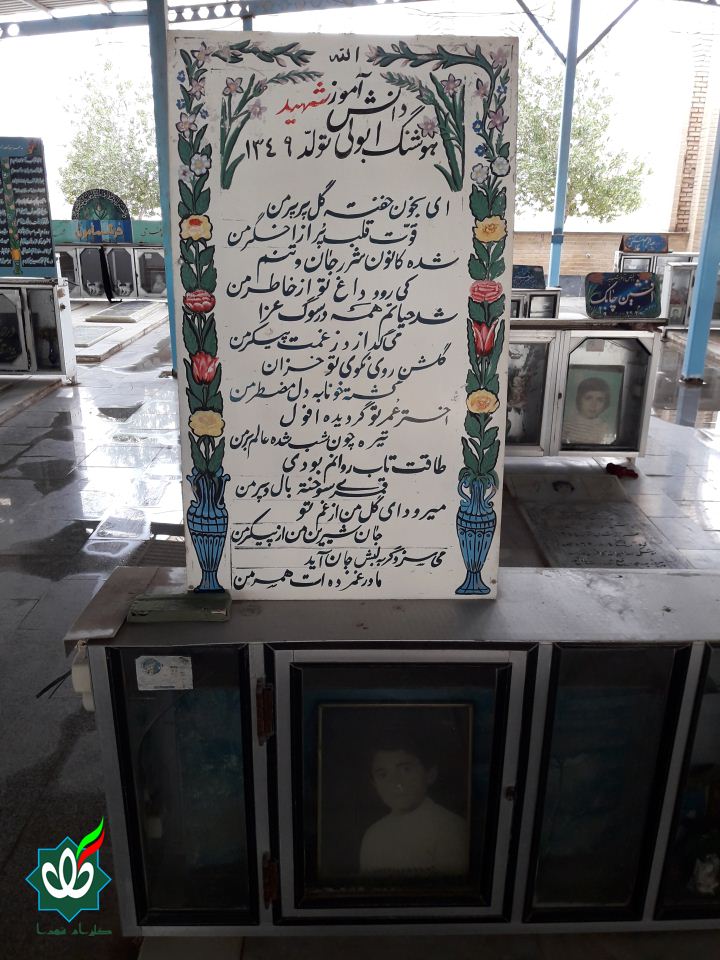 الله
دانش آموز شهید
هوشنگ ابولی تولد ۱۳٤۹
ای بخون خفته گل پرپر من
قوت قلب پُر از اخگر من
شده کانون شرر جان و تنم
کی رود داغ تو از خاطر من
شد حیاتم همه در سوگ عزا
می گدازد ز غمت پیکر من
گلشن روی نکوی تو خزان
گشته خونابه دل مضطر من
اختر عُمر تو گردیده افول
تیره چون شب شده عالم بر من
طاقت تاب روانم بودی
سوخته بال و پر من
میرود ای گل من از غم تو
جان شیرین من از پیکر من
می سزد گر به لبش جان آید
مادر غمزده ات همسر من
افشین چابک